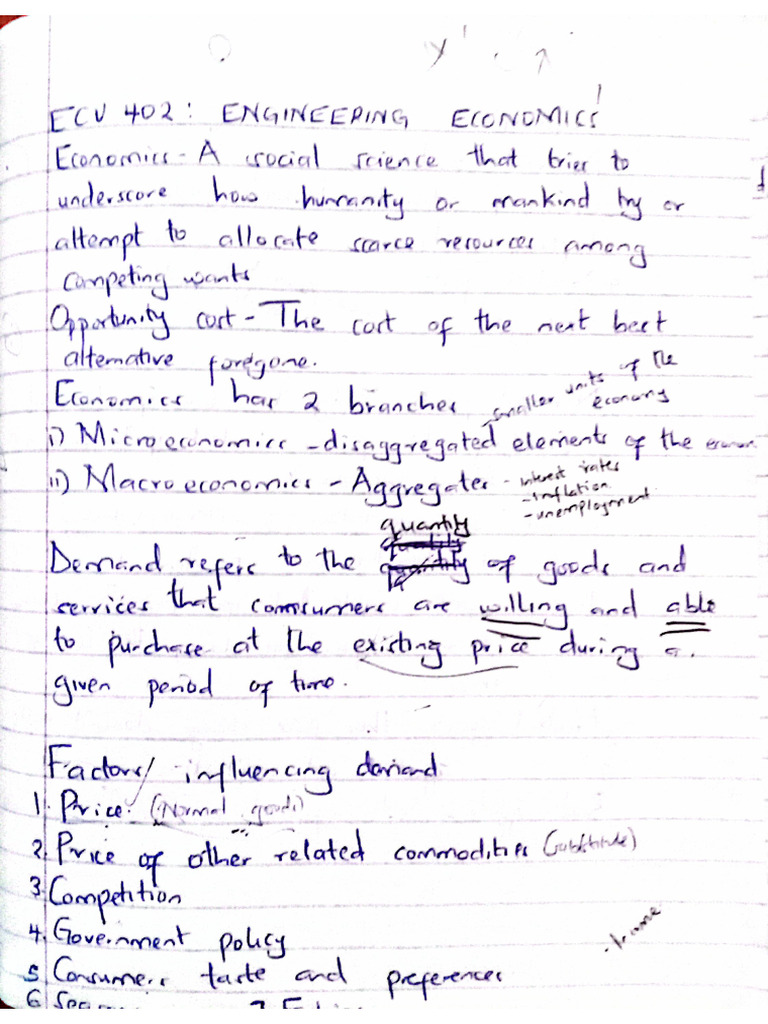 ECU 402: ENGINEERING ECONOMICS
Economics - A social science that tries to
underscore how humanity or mankind try or
attempt to allocate scarce resources among
competing wants
Opportunity cost - The cost of the next best
alternative foregone.
Economics has 2 branches
smaller units of the economy
i) Microeconomics - disaggregated elements of the
ii) Macroeconomics - Aggregates - interest rates
- inflation
- unemployment
quantity
Demand refers to the of goods and
services that comnsumers are willing and able
to purchase at the existing price during a
given period of time.
Factors/ influencing demand
1. Price: (Normal goods)
2. Price of other related commodities (substitute)
3 Competition
4. Government policy
5 Consumers taste and preferences
6